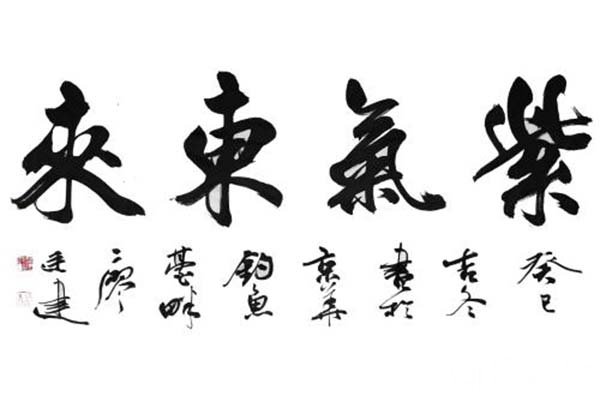 紫氣東來
癸巳
吉冬
書於
京華
釣魚
臺畔
廖
建